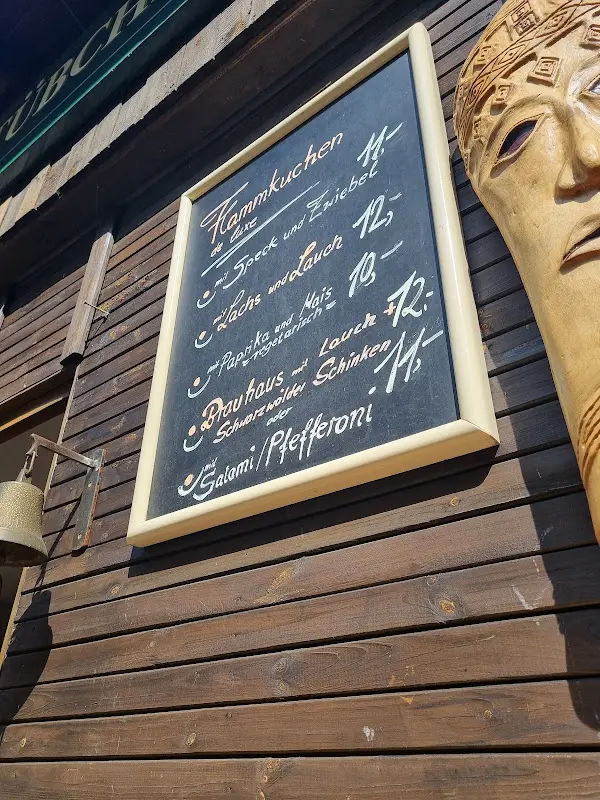 TÜBCH
Flammkuchen
de luxe
mit Speck und Zwiebel 11,-
mit Lachs und Lauch 12,-
mit Paprika und Mais 10,-
- vegetarisch -
Brauhaus mit Lauch + 12,-
Schwarzwälder Schinken
oder
mit Salami/Pfefferoni 11,-